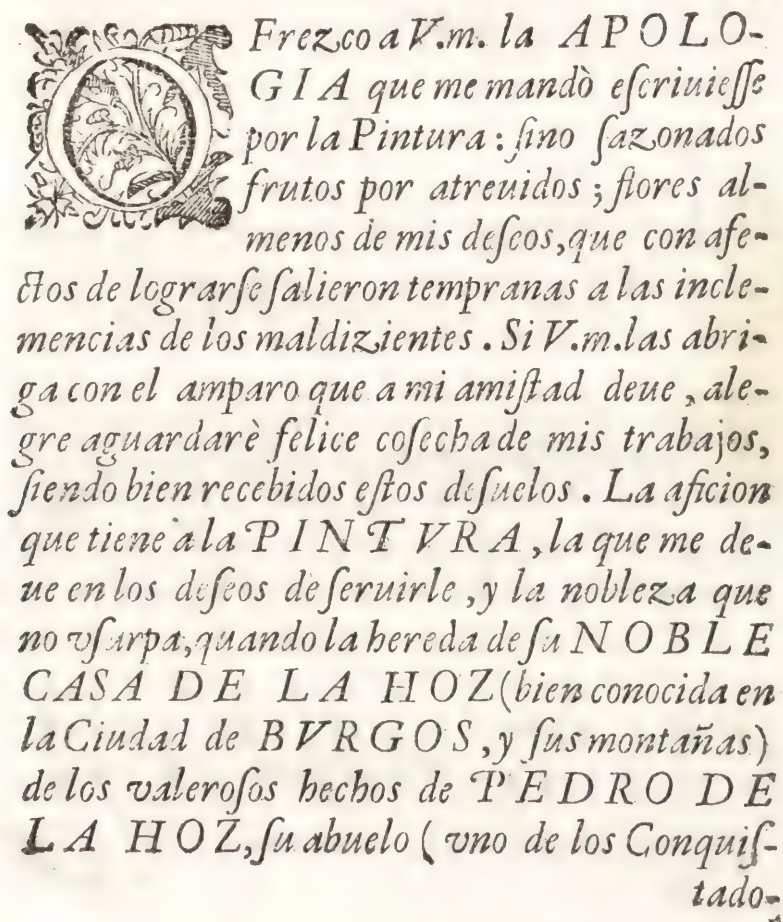 OFrezco a V.m. la APOLO-
GIA que me mandò eſcriuieſſe
por la Pintura : ſino ſazonados
frutos por atreuidos ; flores al-
menos de mis deſeos, que con afe-
ctos de lograrſe ſalieron tempranas a las incle-
mencias de los maldizientes . Si V.m. las abri-
ga con el amparo que a mi amiſtad deue , ale-
gre aguardarè felice coſecha de mis trabajos,
ſiendo bien recebidos eſtos deſuelos . La aficion
que tiene a la PINTVRA , la que me de-
ue en los deſeos de ſeruirle , y la nobleza que
no vſurpa, quando la hereda de ſu NOBLE
CASA DE LA HOZ (bien conocida en
la Ciudad de BVRGOS , y ſus montañas)
de los valeroſos hechos de PEDRO DE
LA HOZ, ſu abuelo ( vno de los Conquiſ-
tado-